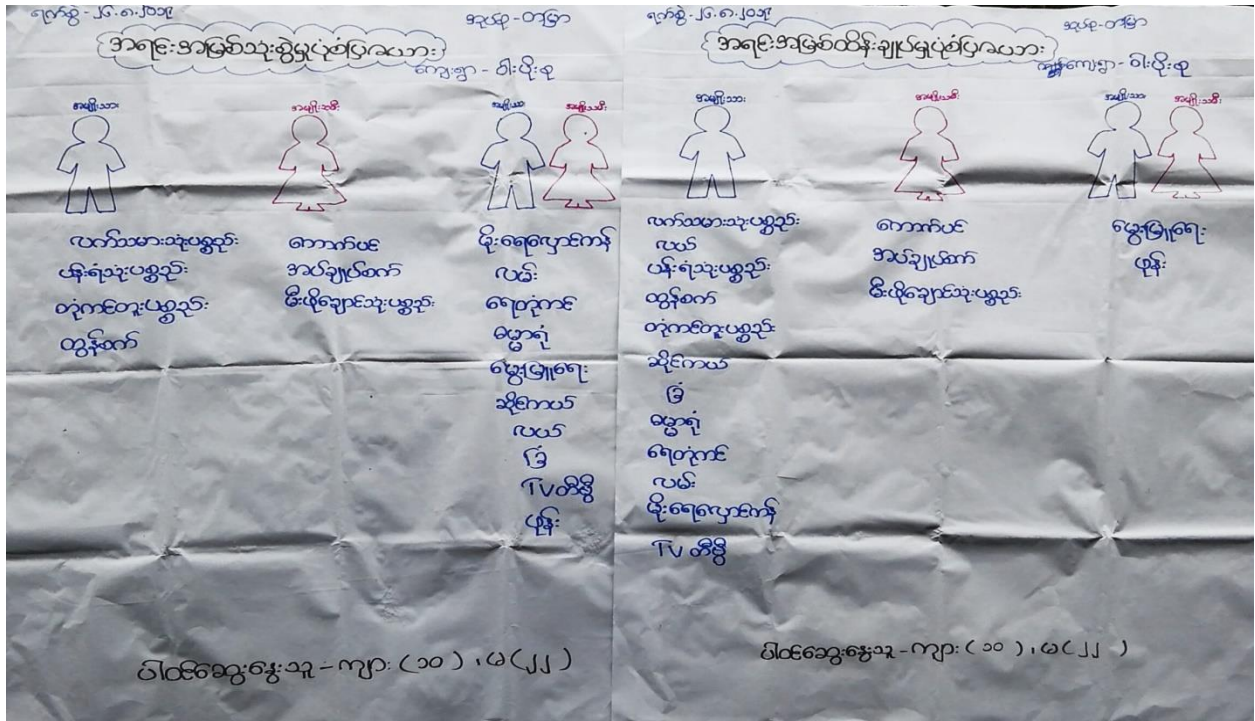 ရက်စွဲ - ၂၆.၈.၂၀၁၉
အုပ်စု - တမြာ
အရင်းအမြစ်သုံးစွဲမှုပုံစံပြဇယား
ကျေးရွာ - ဝါးပိုးစု
အမျိုးသား
အမျိုးသမီး
အမျိုးသား
အမျိုးသမီး
လက်သမားသုံးပစ္စည်း
ပန်းရံသုံးပစ္စည်း
တုံကင်တူးပစ္စည်း
ထွန်စက်
ကောက်ပင်
အပ်ချုပ်စက်
မီးဖိုချောင်သုံးပစ္စည်း
မိုးရေလှောင်ကန်
လမ်း
ရေတုံကင်
ဓမ္မာရုံ
မွေးမြူရေး
ဆိုင်ကယ်
လယ်
ခြံ
TV တီဗွီ
ဖုန်း
ပါဝင်ဆွေးနွေးသူ - ကျား (၁၀) ၊ မ (၂၂)
ရက်စွဲ - ၂၆.၈.၂၀၁၉
အုပ်စု - တမြာ
အရင်းအမြစ်ထိန်းချုပ်မှုပုံစံပြဇယား
ကျေးရွာ - ဝါးပိုးစု
အမျိုးသား
အမျိုးသမီး
အမျိုးသား
အမျိုးသမီး
လက်သမားသုံးပစ္စည်း
လယ်
ပန်းရံသုံးပစ္စည်း
ထွန်စက်
တုံကင်တူးပစ္စည်း
ဆိုင်ကယ်
ခြံ
ဓမ္မာရုံ
ရေတုံကင်
လမ်း
မိုးရေလှောင်ကန်
TV တီဗွီ
ကောက်ပင်
အပ်ချုပ်စက်
မီးဖိုချောင်သုံးပစ္စည်း
မွေးမြူရေး
ဖုန်း
ပါဝင်ဆွေးနွေးသူ - ကျား (၁၀) ၊ မ (၂၂)